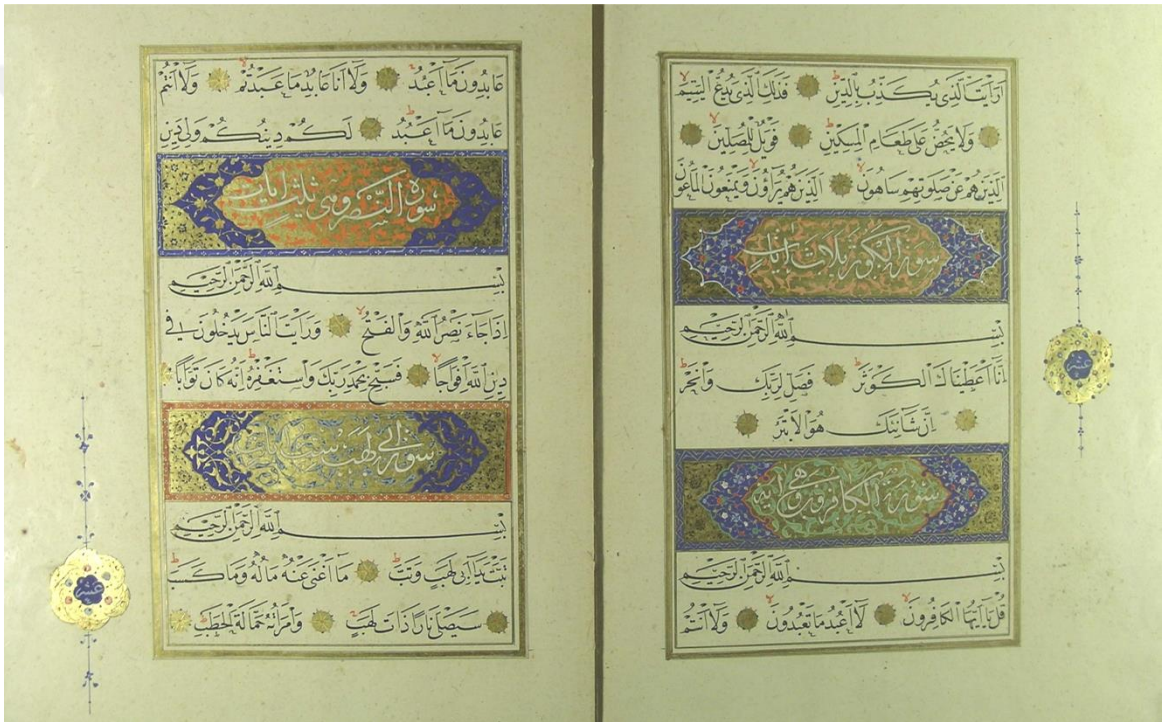 اَرَاَيْتَ الَّذِي يُكَذِّبُ بِالدِّينِ فَذٰلِكَ الَّذِي يَدُعُّ الْيَتِيمَ
وَلَا يَحُضُّ عَلٰى طَعَامِ الْمِسْكِينِ فَوَيْلٌ لِلْمُصَلِّينَ
اَلَّذِينَ هُمْ عَنْ صَلٰوتِهِمْ سَاهُونَ اَلَّذِينَ هُمْ يُرَاؤُنَ وَيَمْنَعُونَ الْمَاعُونَ
سورة الكوثر ثلاث ايات
بِسْمِ اللّٰهِ الرَّحْمٰنِ الرَّحِيمِ
اِنَّا اَعْطَيْنَاكَ الْكَوْثَرَ فَصَلِّ لِرَبِّكَ وَانْحَرْ
اِنَّ شَانِئَكَ هُوَ الْاَبْتَرُ
سورة الكافرون وهي اية
بِسْمِ اللّٰهِ الرَّحْمٰنِ الرَّحِيمِ
قُلْ يَا اَيُّهَا الْكَافِرُونَ لَا اَعْبُدُ مَا تَعْبُدُونَ وَلَا اَنْتُمْ
عشر
عَابِدُونَ مَا اَعْبُدُ وَلَا اَنَا عَابِدٌ مَا عَبَدْتُمْ وَلَا اَنْتُمْ
عَابِدُونَ مَا اَعْبُدُ لَكُمْ دِينُكُمْ وَلِيَ دِينِ
سورة النصر وهي ثلث ايات
بِسْمِ اللّٰهِ الرَّحْمٰنِ الرَّحِيمِ
اِذَا جَاءَ نَصْرُ اللّٰهِ وَالْفَتْحُ وَرَاَيْتَ النَّاسَ يَدْخُلُونَ فِي
دِينِ اللّٰهِ اَفْوَاجًا فَسَبِّحْ بِحَمْدِ رَبِّكَ وَاسْتَغْفِرْهُ اِنَّهُ كَانَ تَوَّابًا
سورة ابي لهب
بِسْمِ اللّٰهِ الرَّحْمٰنِ الرَّحِيمِ
تَبَّتْ يَدَا اَبِي لَهَبٍ وَتَبَّ مَا اَغْنٰى عَنْهُ مَالُهُ وَمَا كَسَبَ
سَيَصْلٰى نَارًا ذَاتَ لَهَبٍ وَامْرَاَتُهُ حَمَّالَةَ الْحَطَبِ
عشر